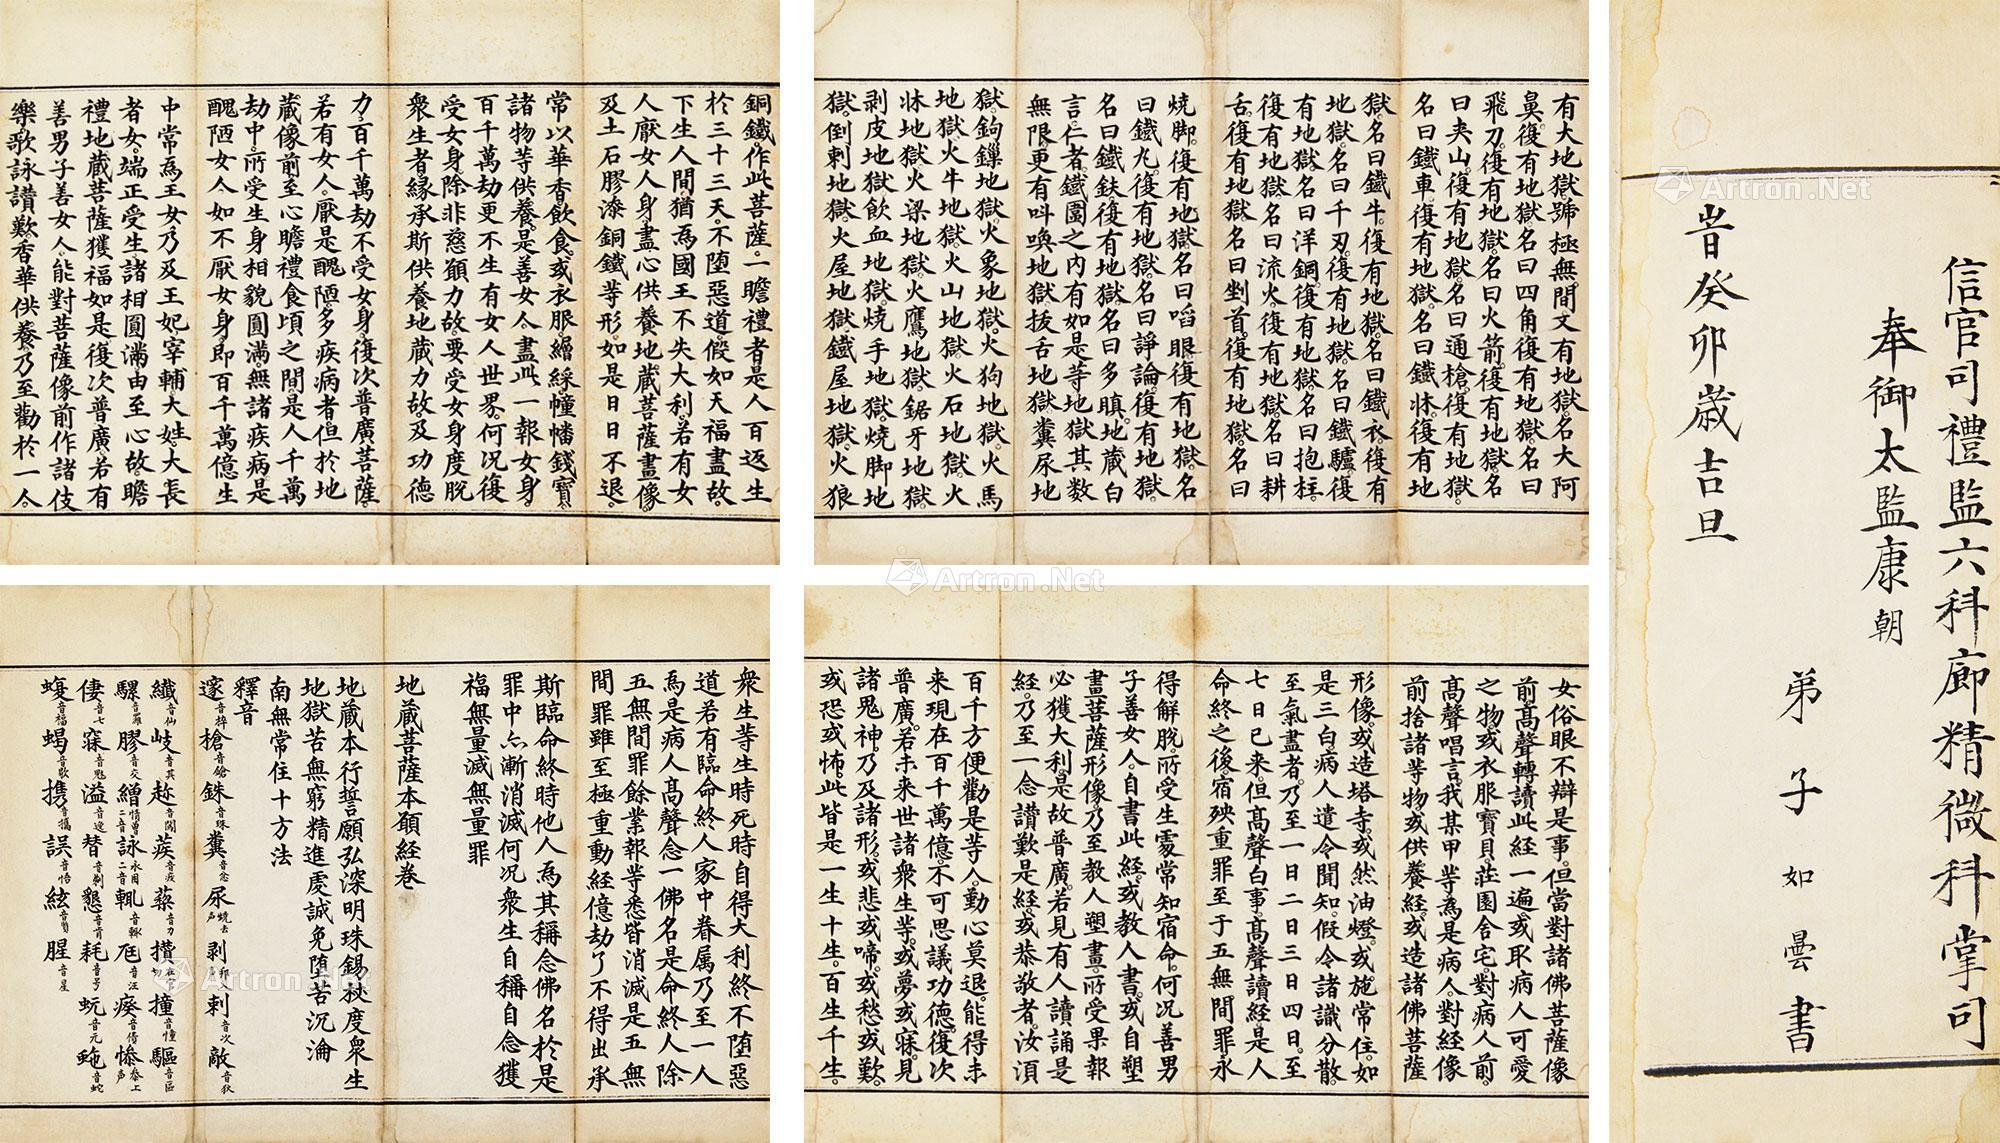 銅鐵作此菩薩。一瞻禮者是人百返生
於三十三天。不墮惡道。假如天福盡故。
下生人間。猶為國王不失大利。若有女
人厭女人身。盡心供養地藏菩薩畫像
及土石膠漆銅鐵等形。如是日日不退。
常以華香飲食。或衣服繒綵幢幡錢寶
諸物等供養。是善女人。盡此一報女身
百千萬劫更不生有女人世界。何况復
受女身。除非慈願力故。要受女身度脫
衆生者。緣承斯供養地藏力故。及功德
力。百千萬劫不受女身。復次普廣菩薩。
若有女人。厭是醜陋。多疾病者。但於地
藏像前至心瞻禮食頃之間。是人千萬
劫中。所受生身相貌圓滿。無諸疾病。是
醜陋女人。如不厭女身。即百千萬億生
中。常為王女。乃及王妃。宰輔大姓。大長
者女。端正受生。諸相圓滿。由至心故。瞻
禮地藏菩薩獲福如是。復次普廣。若有
善男子善女人。能對菩薩像前作諸伎
樂。歌詠讚歎。香華供養。乃至勸於一人
有大地獄。號極無間。又有地獄。名大阿
鼻。復有地獄。名曰四角。復有地獄。名曰
飛刀。復有地獄。名曰火箭。復有地獄。名
曰夾山。復有地獄。名曰通槍。復有地獄。
名曰鐵車。復有地獄。名曰鐵牀。復有地
獄。名曰鐵牛。復有地獄。名曰鐵衣。復有
地獄。名曰千刃。復有地獄。名曰鐵驢。復
有地獄。名曰洋銅。復有地獄。名曰抱柱。
復有地獄。名曰流火。復有地獄。名曰耕
舌。復有地獄。名曰剉首。復有地獄。名曰
燒脚。復有地獄。名曰啗眼。復有地獄。名
曰鐵丸。復有地獄。名曰諍論。復有地獄。
名曰鐵鈇。復有地獄。名曰多瞋。地藏白
言。仁者。鐵圍之內有如是等地獄。其數
無限。更有呌喚地獄。拔舌地獄。糞尿地
獄。銅鏁地獄。火象地獄。火狗地獄。火馬
地獄。火牛地獄。火山地獄。火石地獄。火
牀地獄。火梁地獄。火鷹地獄。鋸牙地獄。
剥皮地獄。飲血地獄。燒手地獄。燒脚地
獄。倒刺地獄。火屋地獄。鐵屋地獄。火狼
女俗眼不辯是事。但當對諸佛菩薩像
前。高聲轉讀此經一遍。或取病人可愛
之物。或衣服寶貝。莊園舍宅。對病人前。
高聲唱言。我某甲等。為是病人。對經像
前捨諸等物。或供養經。或造諸佛菩薩
形像。或造塔寺。或然油燈。或施常住。如
是三白。病人遣令聞知。假令諸識分散。
至氣盡者。乃至一日二日三日四日。至
七日已來。但高聲白事。高聲讀經。是人
命終之後。宿殃重罪至于五無間罪。永
得解脫。所受生處常知宿命。何况善男
子善女人。自書此經。或教人書。或自塑
畫菩薩形像。乃至教人塑畫。所受果報
必獲大利。是故普廣。若見有人讀誦是
經。乃至一念讚歎是經。或恭敬者。汝須
百千方便勸是等人。勤心莫退。能得未
來現在百千萬億。不可思議功德。復次
普廣。若未來世諸衆生等。或夢或寐。見
諸鬼神。乃及諸形。或悲或啼。或愁或歎。
或恐或怖。此皆是一生十生百生千生
衆生等生時死時自得大利終不墮惡
道若有臨命終人家中眷属乃至一人
為是病人高聲念一佛名是命終人除
五無間罪餘業報等悉皆消滅是五無
間罪雖至極重動經億劫了不得出承
斯臨命終時他人為其稱念佛名於是
罪中亦漸消滅何况衆生自稱自念獲
福無量滅無量罪
地藏菩薩本願經卷
地藏本行誓願弘深明珠錫杖度衆生
地獄苦無窮精進虔誠免墮苦沉淪
南無常住十方法
釋音
邃音粹 槍音鎗 銖音殊 糞音忿 尿燒去声 剥 刺音次 敵音狄
纖音仙 岐音其 趂 蒺音疾 蔾 攢 撞音 驅音區
騾音羅 膠音交 繒 詠 輒 尫音汪 瘥 慘
悽音七 寐 溢音逸 替音剃 懇音肯 耗音号 蚖音元 虵音蛇
蝮音福 蝎音歇 携 誤音悟 絃音賢 腥音星
信官司禮監六科廊精微科掌司
奉御太監康朝
弟子如曇書
旹癸卯歲吉旦
Artron.Net
Artron.Net
Artron.Net
Artron.Net